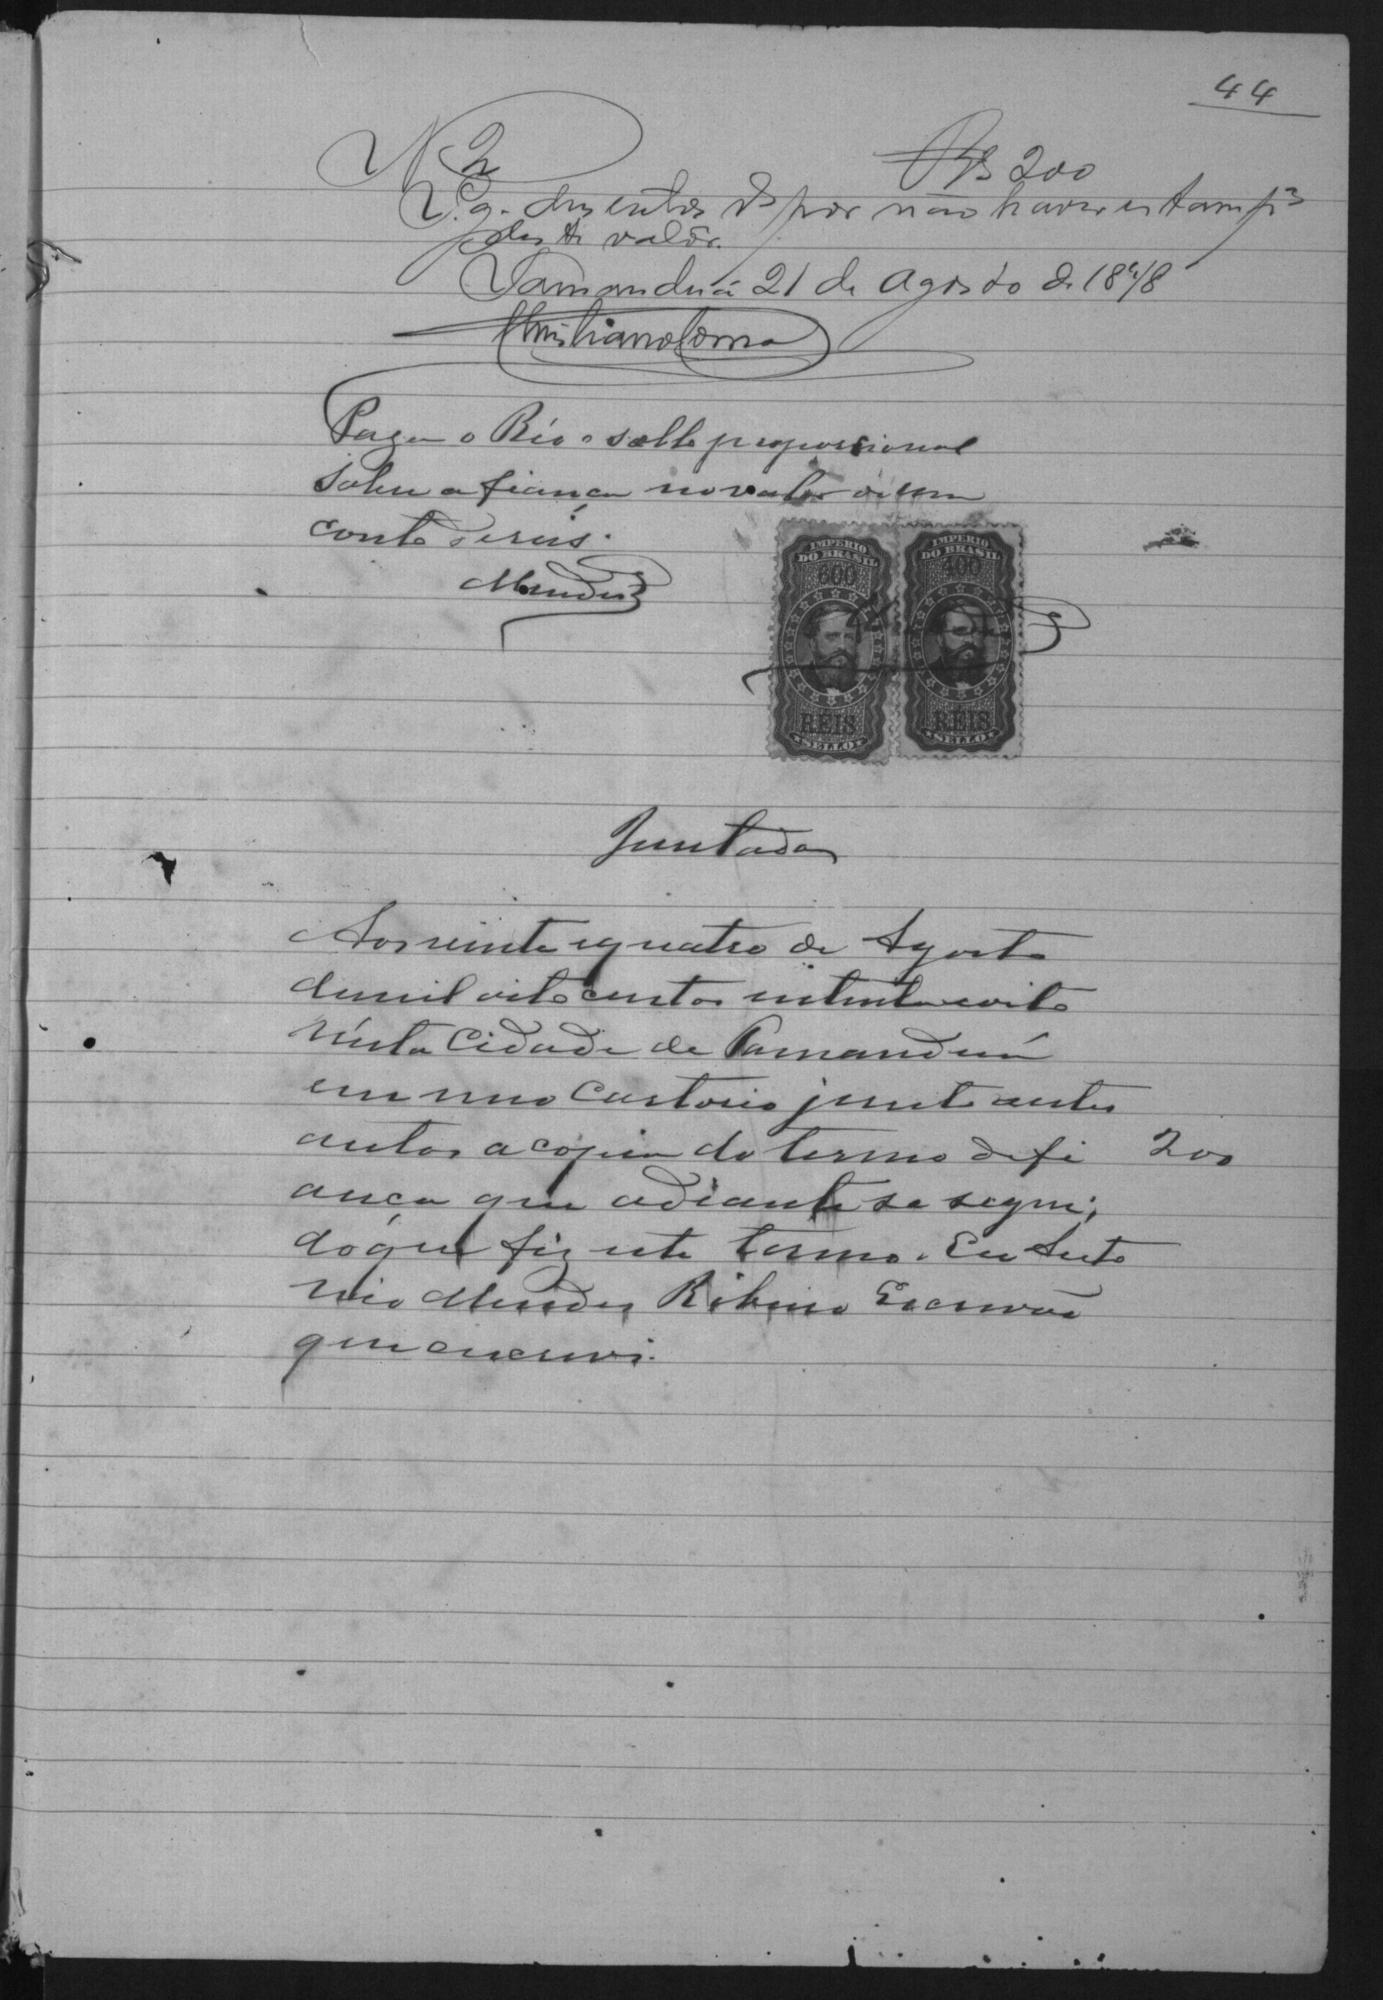 44
N 2 Rs 200
Pg. dusentos rs por não haver estampª
deste valôr.
Tamanduá 21 de Agosto de 1878
Paga o Réo o sello proporcional
sobre a fiança no valor de um
conto de reis.
Mendes
IMPERIO DO BRASIL 600 REIS SELLO
IMPERIO DO BRASIL 400 REIS SELLO
Juntada
Aos vinte e quatro de Agosto
de mil oito centos setenta e oito
nésta Cidade de Tamanduá
em meo Cartorio junto a estes
autos a copia do termo de fi 200
ança que adiante se segue;
do que fiz este termo. Eu Anto
nio Mendes Ribeiro Escrivão
que escrevi.